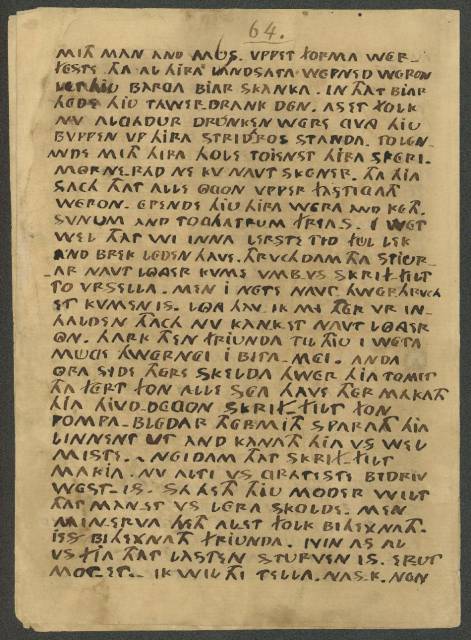 64.
MITH MAN AND MUS. VPPET FORMA WER-
FESTE THA AL HIRA LANDSATA WEPNED WERON
LET HIU BARGA BIAR SKANKA. IN THAT BIAR
HEDE HIU TAWER-DRANK DEN. AS ET FOLK
NV ALGADUR DRUNKEN WERE GVNG HIU
BVPPEN VP HIRA STRIDHROS STANDA. TO LEN-
ANDE MITH HIRA HOLE TOIENST HIRA SPERI.
MORNE-RAD NE KV NAVT SKENER. THA HIA
SACH THAT ALLE OGON VPPER FASTIGATH
WERON. EPENDE HIU HIRA WERA AND KETH.
SVNUM AND TOGHATRUM FRYAS. I WET
WEL THAT WI INNA LERSTE TYD FUL LEK
AND BREK LEDEN HAVE. THRUCHDAM THA STIUR-
AR NAVT LONGER KUME VMB VS SKRIF-FILT
TO URSELLA. MEN I NETE NAVT HWERTHRUCH
ET KUMEN IS. LONG HAV. IK MY THER UR IN-
HALDEN THACH NV KANKET NAVT LONGER
ON. HARK THEN FRIUNDA TIL THIU I WETA
MUGE HWERNEI I BITA-MEI. ANDA
ORA SIDE THERE SKELDA HWER HIA TOMET
THA FERT FON ALLE SEA HAVE THER MAKATH
HIA HIVD-DEGON SKRIF-FILT FON
POMPA-BLEDAR THERMITH SPARATH HIA
LINNENT UT AND KANATH HIA VS WEL
MISTE. NEIDAM THAT SKRIF-FILT
MAKIA. NV ALTI VS GRATESTE BIDRIV
WEST-IS. SA HETH THIU MODER WILT
THAT MAN.ET VS LERA SKOLDE. MEN
MIN-ERVA HETH AL-ET FOLK BIHEXNATH.
IES BIHEXNATH FRIUNDA. IVIN AS AL
VS FIA THAT LASTEN STURVEN IS. ERUT
MOT-ET. IK WIL THI TELLA. NAS-K. NEN